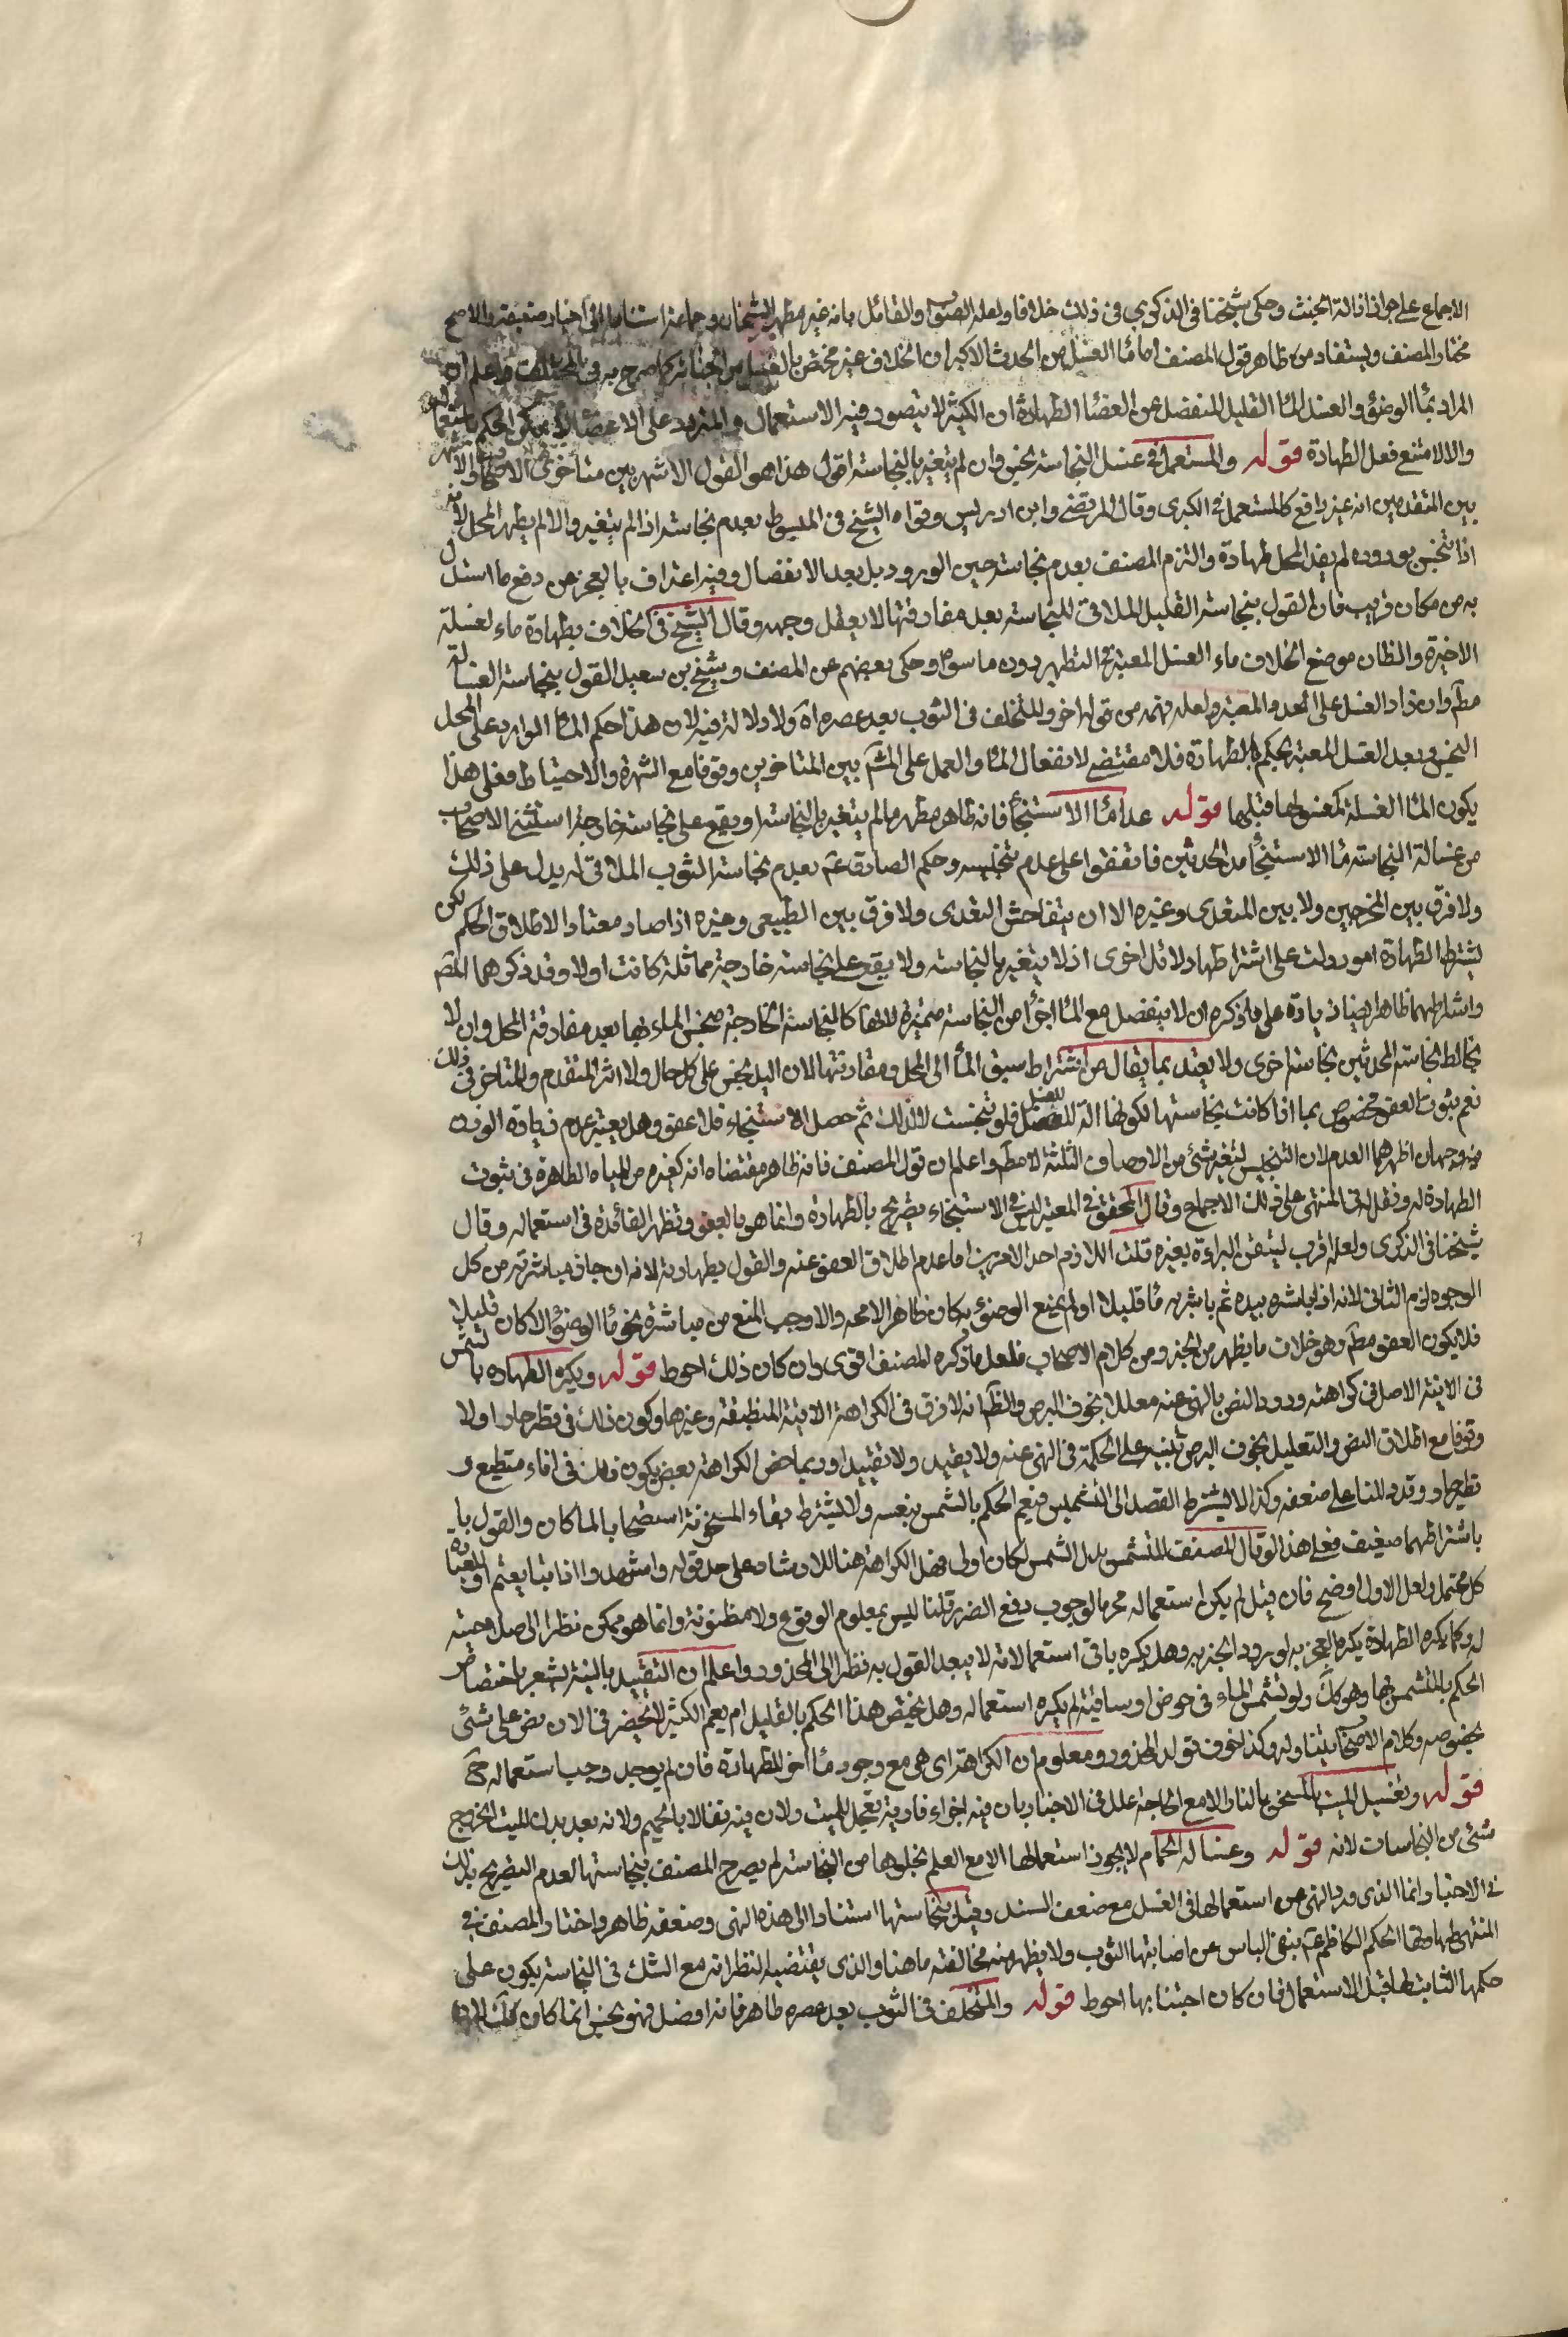 الاجماع على جواز ازالة الخبث وحكى شيخنا فى الذكرى فى ذلك خلافا ولعله الصواب والقائل بانه غير مطهر الشيخان وجماعة استنادا الى اخبار ضعيفة والاصح
مختار المصنف ويستفاد من ظاهر قول المصنف اما ماء الغسل من الحدث الاكبر ان الخلاف غير مختص بالغسل من الجنابة كما صرح به فى المختلف واعلم ان
المراد بماء الوضوء والغسل الماء القليل المنفصل عن اعضاء الطهارة اذ الكثير لا يتصور فيه الاستعمال والمتردد على الاعضاء لا يمكن الحكم باستعماله
والا لامتنع فعل الطهارة قوله والمستعمل فى غسل النجاسة نجس وان لم يتغير بالنجاسة اقول هذا هو القول الاشهر بين متأخرى الاصحاب والاشهر
بين المتقدمين انه غير رافع كالمستعمل فى الكبرى وقال المرتضى وابن ادريس وقواه الشيخ فى المبسوط بعدم نجاسته اذا لم يتغير والا لم يطهر المحل لانه
اذا تنجس بوروده لم يفد المحل طهارة والتزم المصنف بعدم نجاسته حين الورود بل بعد الانفصال وفيه اعتراف بالعجز عن دفع ما استدل
به من مكان قريب فان القول بنجاسة القليل الملاقى للنجاسة بعد مفارقتها لا يعقل وجهه وقال الشيخ فى الخلاف بطهارة ماء الغسلة
الاخيرة والظان موضع الخلاف ماء الغسل المعتبر فى التطهير دون ما سواه وحكى بعضهم عن المصنف وشيخه بن سعيد القول بنجاسة الغسالة
مطلقا وان زاد الغسل على العدد المعتبر ولعله فهمه من قوله اخر والمتخلف فى الثوب بعد عصره اه ولا دلالة فيه لان هذا حكم الماء الوارد على المحل
النجس وبعد الغسل المعتبر يحكم بالطهارة فلا مقتضى لانفعال الماء والعمل على المشهور بين المتاخرين وقوفا مع الشهرة والاحتياط فعلى هذا
يكون الماء الغسلة كمغسولها قبلها قوله عدا ماء الاستنجاء فانه طاهر مطهر ما لم يتغير بالنجاسة او يقع على نجاسة خارجة استثنى الاصحاب
من غسالة النجاسة ماء الاستنجاء من الحدثين فاتفقوا على عدم تنجيسه وحكم الصادق عم بعدم نجاسة الثوب الملاقى له يدل على ذلك
ولا فرق بين المخرجين ولا بين المتعدى وغيره الا ان يتفاحش التعدى ولا فرق بين الطبيعى وغيره اذا صار معتادا لاطلاق الحكم لكن
يشترط الطهارة امور دلت على اشتراطها دلائل اخرى اذ لا يتغير بالنجاسة ولا يقع على نجاسة خارجة مماثلة كانت اولا وقد ذكرهما المصنف
واشتراطهما ظاهر ايضا زيادة على ما ذكره ان لا ينفصل مع الماء اجزاء من النجاسة متميزة لانها كالنجاسة الخارجة ينجس الماء بها بعد مفارقة المحل وان لا
يخالط نجاسة الحدثين نجاسة اخرى ولا يعتد بما يقال من اشتراط سبق الماء الى المحل ومقارنتها لان اليد تنجس على كل حال ولا اثر للمتقدم والمتاخر فى ذلك
نعم ثبوت العفو مخصوص بما اذا كانت نجاستها لكونها الة للغسل فلو تنجست لا لذلك ثم حصل الاستنجاء فلا عفو وهل يعتبر عدم زيادة الوزن
فيه وجهان اظهرهما العدم لان التنجيس لتغير شئ من الاوصاف الثلثة لا مطلقا واعلم ان قول المصنف فانه طاهر مقتضاه انه كغيره من المياه الطاهرة فى ثبوت
الطهارة له ونقل فى المنتهى على ذلك الاجماع وقال المحقق فى المعتبر ليس فى الاستنجاء تصريح بالطهارة وانما هو بالعفو وتظهر الفائدة فى استعماله وقال
شيخنا فى الذكرى ولعله اقرب لتيقن البراءة بغيره قلت اللازم احد الامرين اما عدم اطلاق العفو عنه والقول بطهارته لانه ان جاز مباشرته من كل
الوجوه لزم الثانى لانه اذا باشره بيده ثم باشر به ماء قليلا او لم يمنع الوضوء به كان طاهرا لا محه والا وجب المنع من مباشرة نحو ماء الوضوء اذا كان قليلا
فلا يكون العفو مطلقا وهو خلاف ما يظهر من الخبر ومن كلام الاصحاب فلعل ما ذكره المصنف اقوى وان كان ذلك احوط قوله ويكره الطهارة بالمشمس
فى الانية الاصل فى كراهته ورود النص بالنهى عنه معللا بخوف البرص والظاهر انه لا فرق فى الكراهة الانية المنطبعة وغيرها وكون ذلك فى قطر حار اولا
وقوفا مع اطلاق النص والتعليل بخوف البرص تنبيه على الحكمة فى النهى عنه ولا يفيد ولا تقييدا وربما خص الكراهة بعض يكون ذلك فى اناء منطبع و
قطر حار وقد دللنا على ضعفه وكذا لا يشترط القصد الى التشميس فيعم الحكم بالشمس بنفسه ولا يشترط بقاء السخونة استصحابا لما كان والقول با
باشتراطهما ضعيف فعلى هذا لو قال المصنف المتشمس بدل الشمس لكان اولى وهل الكراهة هنا للارشاد على حد قوله واشهدوا اذا تبايعتم او للعبادة
كل محتمل ولعل الاول اوضح فان قيل لم يكن استعماله محرما لوجوب دفع الضرر قلنا ليس بمعلوم الوقوع ولا مظنونه وانما هو ممكن نظرا الى صلاحيته
له وكما يكره الطهارة يكره العجن به لورود الخبر به وهل يكره باقى استعمالاته لا يبعد القول به نظرا الى المحذور واعلم ان التقييد بالانية يشعر باختصاص
الحكم بالمتشمس فيها وهو كك ولو تشمس الماء فى حوض او ساقية لم يكره استعماله وهل يختص هذا الحكم بالقليل ام يعم الكثير لا يحضرنى الان نص على شئ
بخصوصه وكلام الاصحاب يتناوله وكذا لخوف تولد المحذور ومعلوم ان الكراهة اى هى مع وجود ماء اخر للطهارة فان لم يوجد وجب استعماله ح
قوله وتغسيل الميت بالمسخن بالنار الا مع الحاجة علل فى الاخبار بان فيه اجزاء فارية تعجل للميت ولان فيه تفالا بالحميم ولانه بعد بدن الميت لخروج
شئ من النجاسات لانه قوله وغسالة الحمام لا يجوز استعمالها الا مع العلم بخلوها من النجاسة لم يصرح المصنف بنجاستها لعدم التصريح بذلك
فى الاخبار وانما الذى ورد النهى عن استعمالها فى الغسل مع ضعف السند وقيل بنجاستها استنادا الى هذا النهى وضعفه ظاهر واختار المصنف فى
المنتهى طهارتها لحكم الكاظم عم بنفى الباس عن اصابتها الثوب ولا يظهر منه مخالفته ما هنا والذى يقتضيه النظر انه مع الشك فى النجاسة يكون على
حكمها الثابت لها قبل الاستعمال فان كان اجتنابها احوط قوله والمتخلف فى الثوب بعد عصره طاهر فانه انفصل فهو نجس انما كان كك